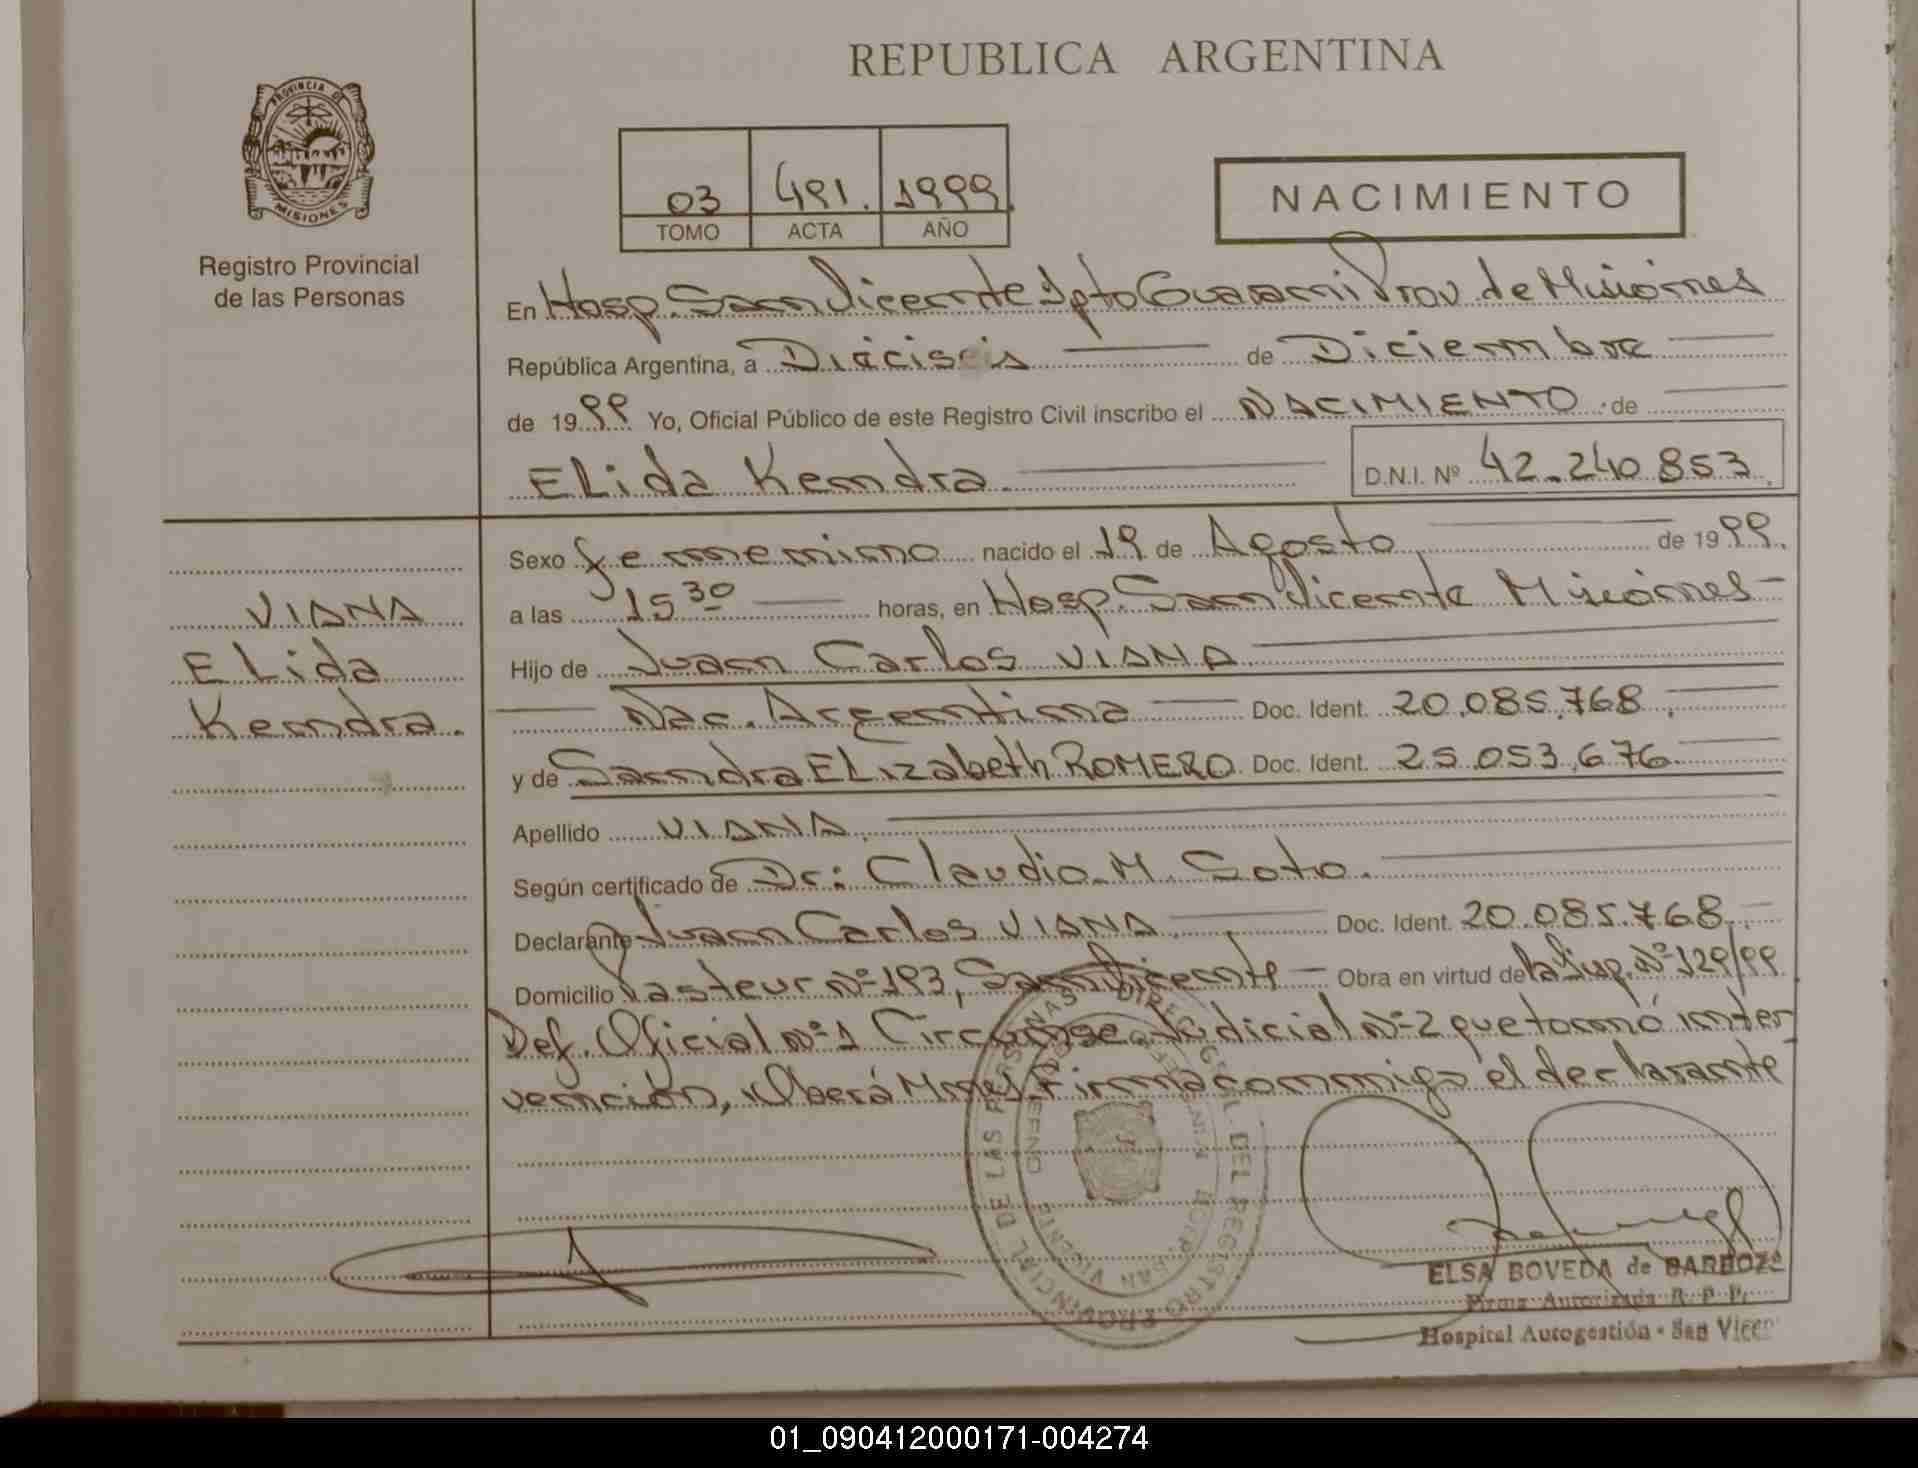 REPUBLICA ARGENTINA
PROVINCIA DE
MISIONES
Registro Provincial
de las Personas
03 491. 1999.
TOMO ACTA AÑO
NACIMIENTO
En Hosp. San Vicente Dpto Guaraní Prov. de Misiones
República Argentina, a Dieciseis de Diciembre
de 1999 Yo, Oficial Público de este Registro Civil inscribo el NACIMIENTO de
ELida Kendra D.N.I. Nº 42.240.853
Sexo femenino nacido el 19 de Agosto de 1999.
a las 15 30 horas, en Hosp. San Vicente Misiones -
VIANA
ELida
Kendra.
Hijo de Juan Carlos VIANA
Nac. Argentina Doc. Ident. 20.085.768.
y de Sandra ELizabeth ROMERO Doc. Ident. 25.053.676
Apellido VIANA
Según certificado de Dr: Claudio M. Soto.
Declarante Juan Carlos VIANA Doc. Ident. 20.085.768.
Domicilio Pasteur Nº 193, San Vicente - Obra en virtud de Nº 129/99
Def. Oficial Nº 1 Judicial Nº 2 que tomó inter
vención, Oberá Mnes. Firma conmigo el declarante
ELSA BOVEDA de BARBOZA
Firma Autorizada R. P. P.
Hospital Autogestión - San Vicen
01_090412000171-004274